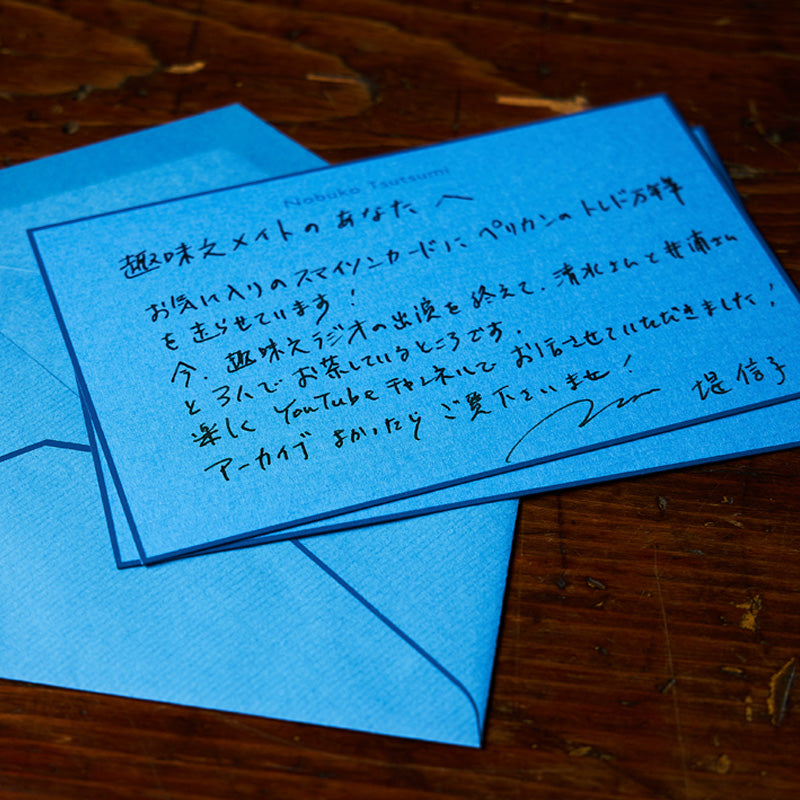 Nobuko Tsutsumi
趣味文メイトのあなたへ
お気に入りのスマイソンカードに ペリカンのトレド万年筆
を走らせています！
今、趣味文ラジオの出演を終えて、清水さんと井浦さん
と3人でお茶しているところです。
楽しく YouTubeチャンネルで お話させていただきました！
アーカイブ よかったら ご覧下さいませ！
堤 信子